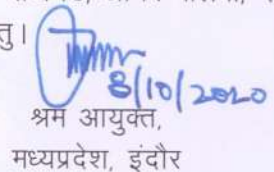 तु।
8/10/2020
श्रम आयुक्त,
मध्यप्रदेश, इंदौर